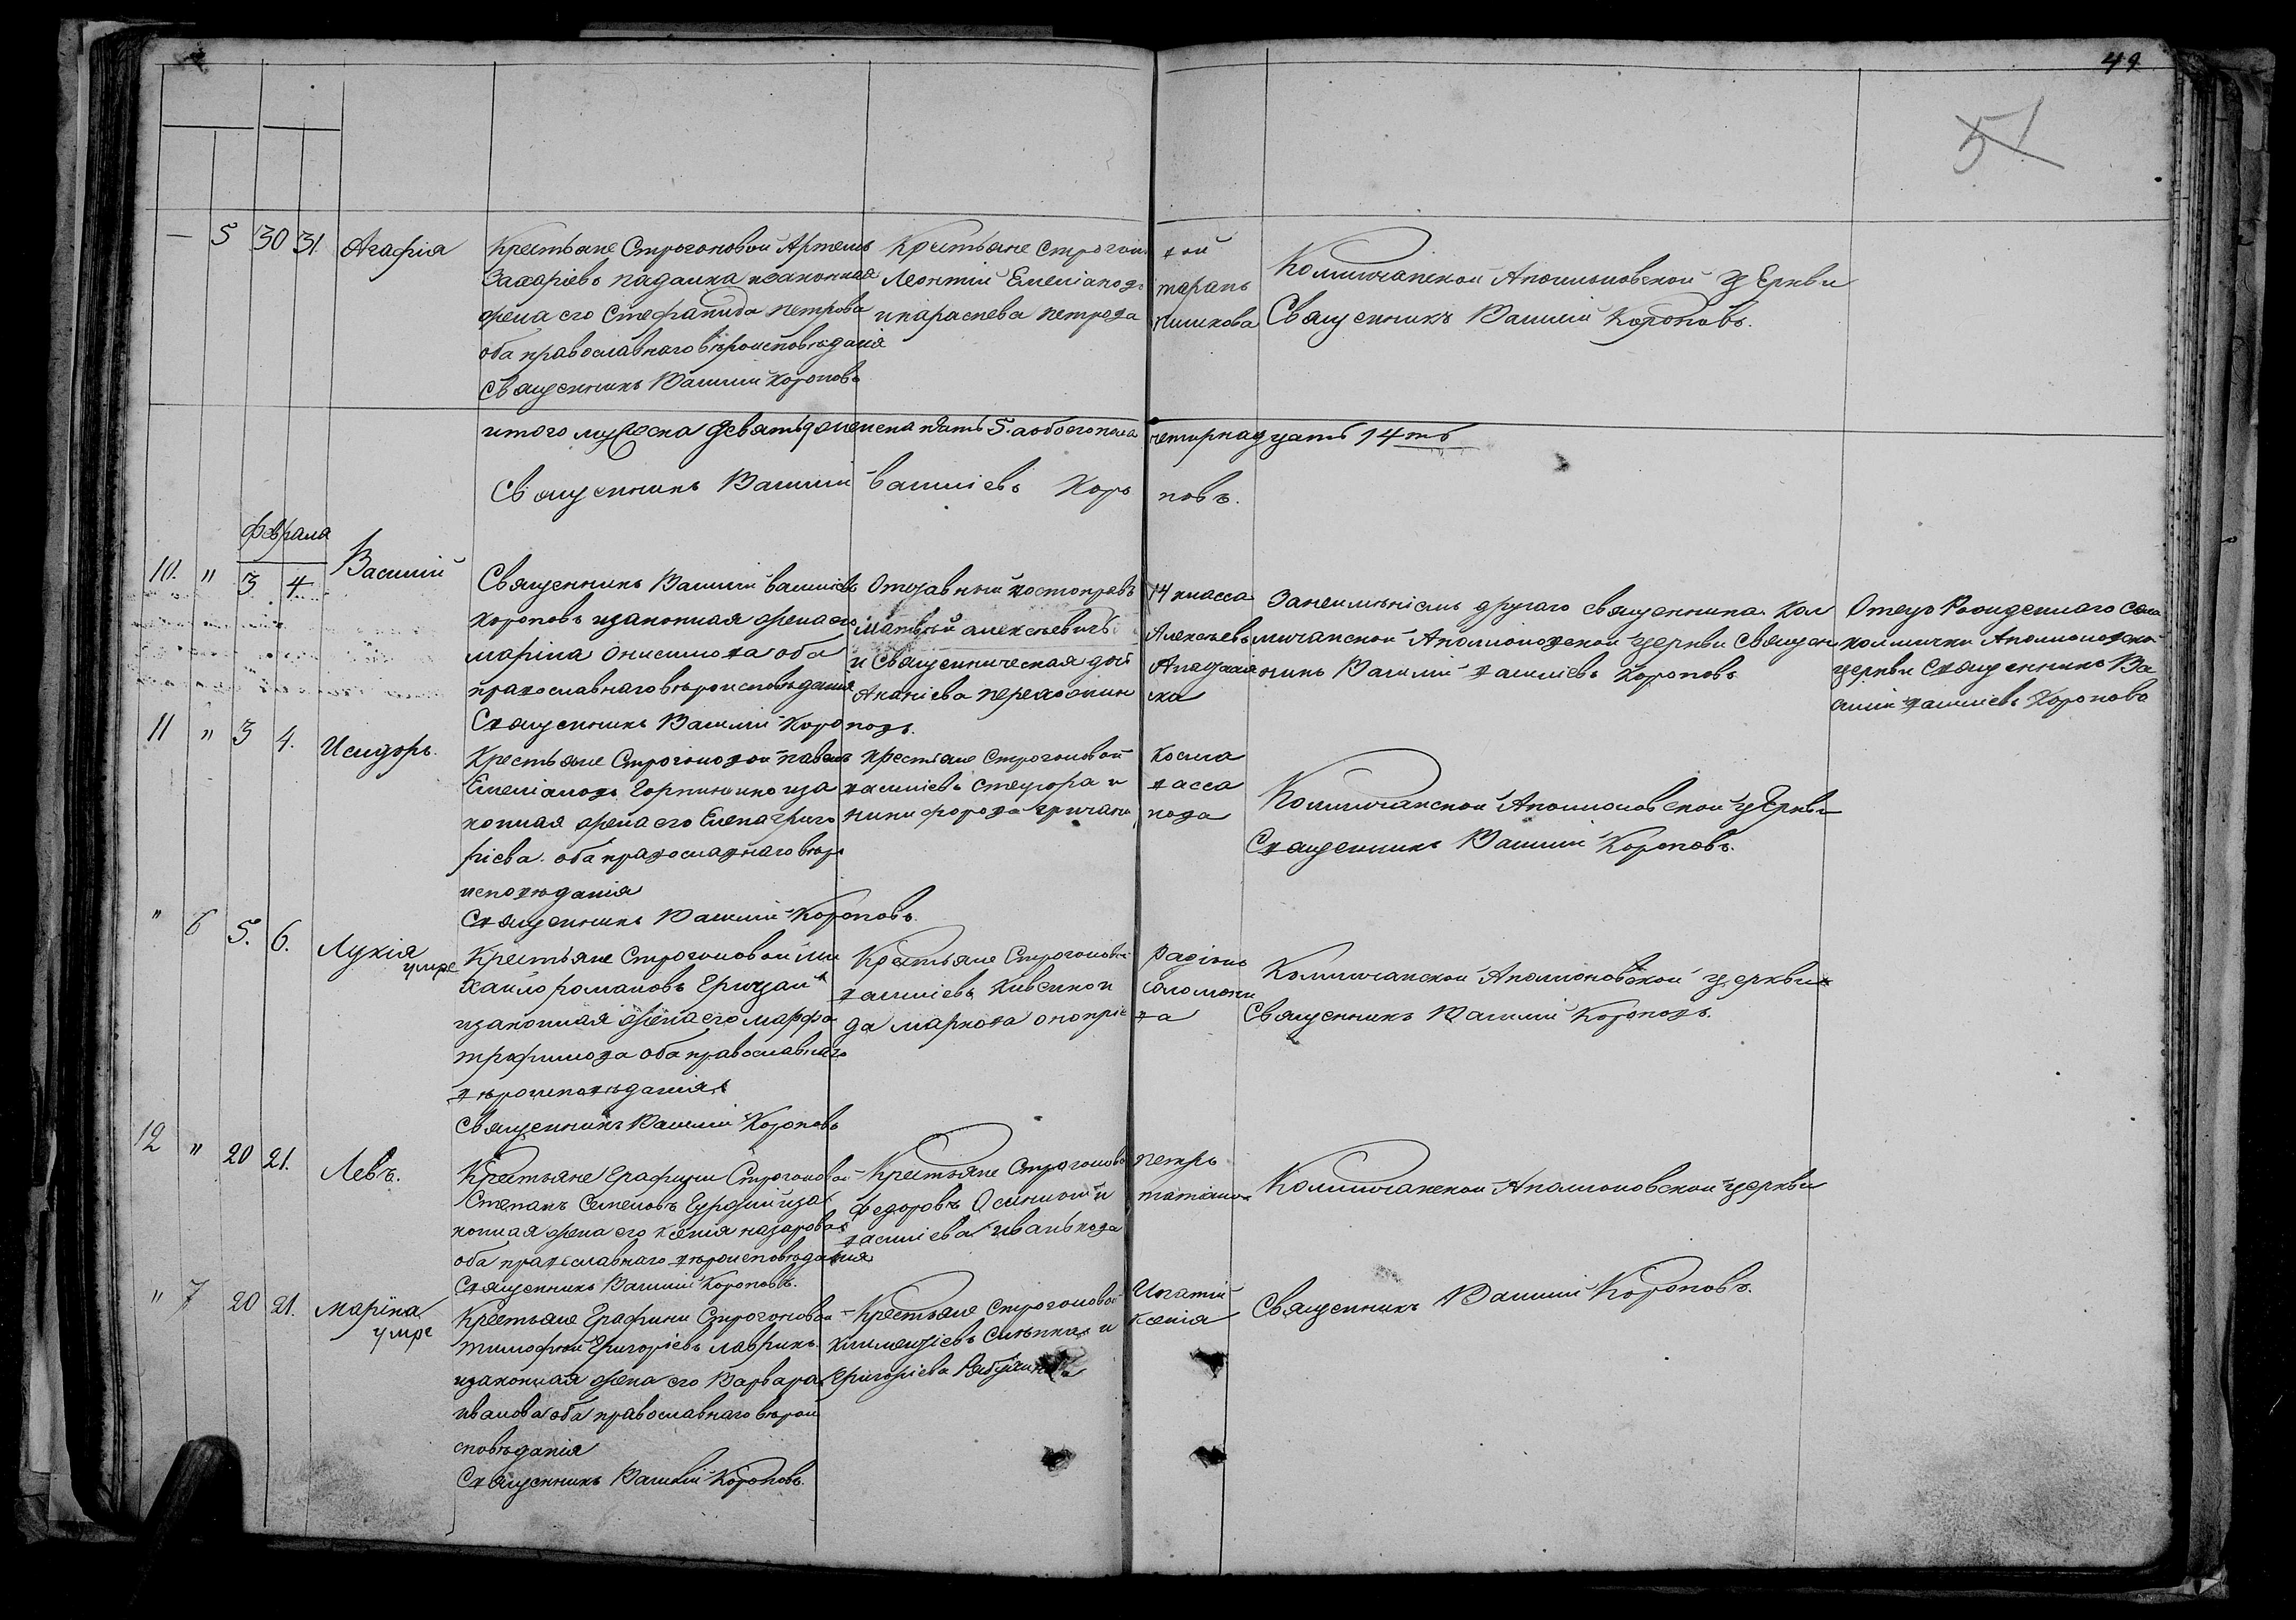 49
51
— 5 30 31. Агафія
Крестьяне Строгоновой Артемъ
Захаріевъ Падалка и законная
жена его Стефанида Петрова
оба православнаго вѣроисповѣданія
Священникъ Василій Короповъ
Крестьяне Строгоновой
Леонтій Емеліановъ
и Параскева Петрова
Коммичанской Аполлоновской церкви
Священникъ Василій Короповъ.
итого мужеска девять 9 женска пять 5. а обоего пола четырнадцать 14ть
Священникъ Василій Василіевъ Короповъ.
февраля
10. " 3 4. Василій
Священникъ Василій Василіевъ
Короповъ и законная жена его
Марина Онисимова оба
православнаго вѣроисповѣданія
Священникъ Василій Короповъ.
14 класса
Матвѣй Алексѣевичъ Алексѣевъ
и священническая
Ананіева
За неимѣніемъ другаго священника Ком
мичанской Аполлоновской церкви Священ
никъ Василій Василіевъ Короповъ
Отецъ Рожденнаго села
Коммички Аполлоновской
церкви Священникъ Ва
силій Василіевъ Короповъ
11 " 3 4. Исидоръ.
Крестьяне Строгоновой Павелъ
Емеліановъ Горпинико и за
конная жена его Елена Григо
ріева. оба православнаго вѣро
исповѣданія
Священникъ Василій Короповъ.
Крестьяне Строгоновой Косма
Василіевъ и Васса
Никифорова
Коммичанской Аполлоновской церкви
Священникъ Василій Короповъ.
" 6 5. 6. Лукія
умре
Крестьяне Строгоновой Ми
хаило Романовъ Грицай
и законная жена его Марфа
Трифимова оба православнаго
вѣроисповѣданія
Священникъ Василій Короповъ
Крестьяне Строгоновой Радіонъ
Василіевъ и Соломони
да Маркова
Коммичанской Аполлоновской церкви
Священникъ Василій Короповъ.
12 " 20 21. Левъ.
Крестьяне Графини Строгоновой
Степанъ Семеновъ и за
конная жена его Ксенія Назарова
оба православнаго вѣроисповѣданія
Священникъ Василій Короповъ.
Крестьяне Строгоновой Петръ
Федоровъ и Татіана
Василіева Иванькова
Коммичанской Аполлоновской церкви
" 7 20 21. Марина
умре
Крестьяне Графини Строгоновой
Тимофей Григоріевъ Лаврикъ
и законная жена его Варвара
Иванова оба православнаго вѣрои
сповѣданія
Священникъ Василій Короповъ.
Крестьяне Строгоновой Игнатій
Климентіевъ и Ксенія
Григоріева
Священникъ Василій Короповъ.